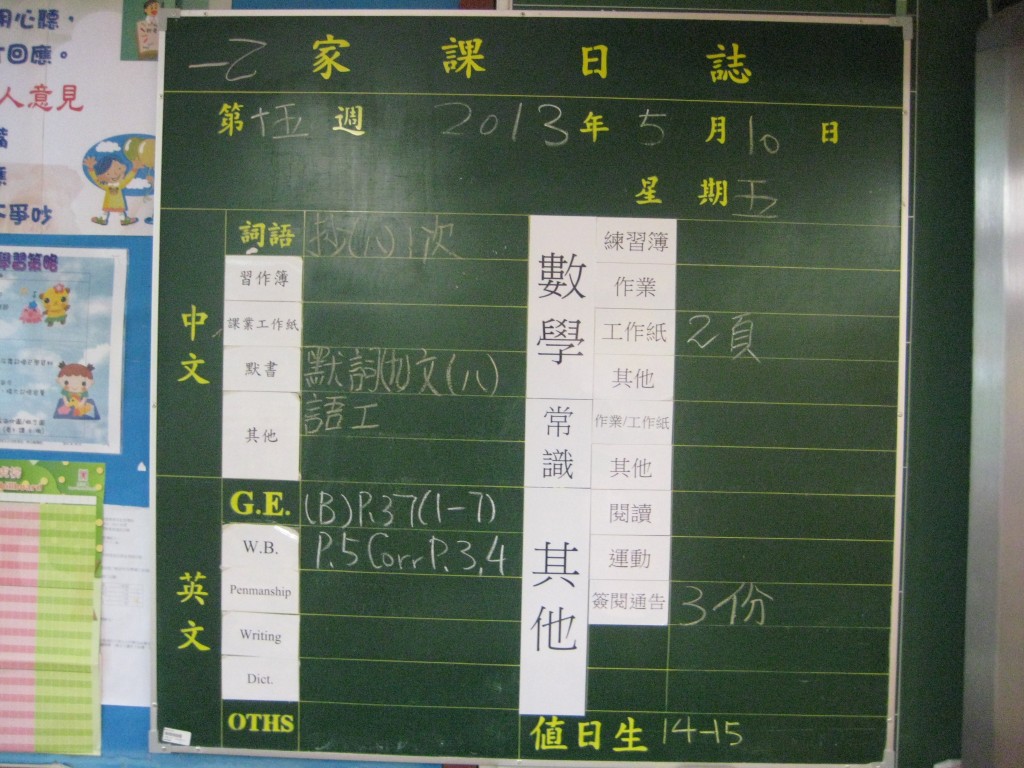 用心聽，
回應。
人意見
不爭吵
學習策略
一乙 家課日誌
第十五週 2013年5月10日
星期五
中文
詞語 抄(八)1次
習作簿
課業工作紙
默書 默詞(九)文(八)
其他 語工
英文
G.E. (B)P.37(1-7)
W.B. P.5 Corr P.3,4
Penmanship
Writing
Dict.
OTHS
數學
練習簿
作業
工作紙 2頁
其他
常識
作業/工作紙
其他
其他
閱讀
運動
簽閱通告 3份
值日生 14-15